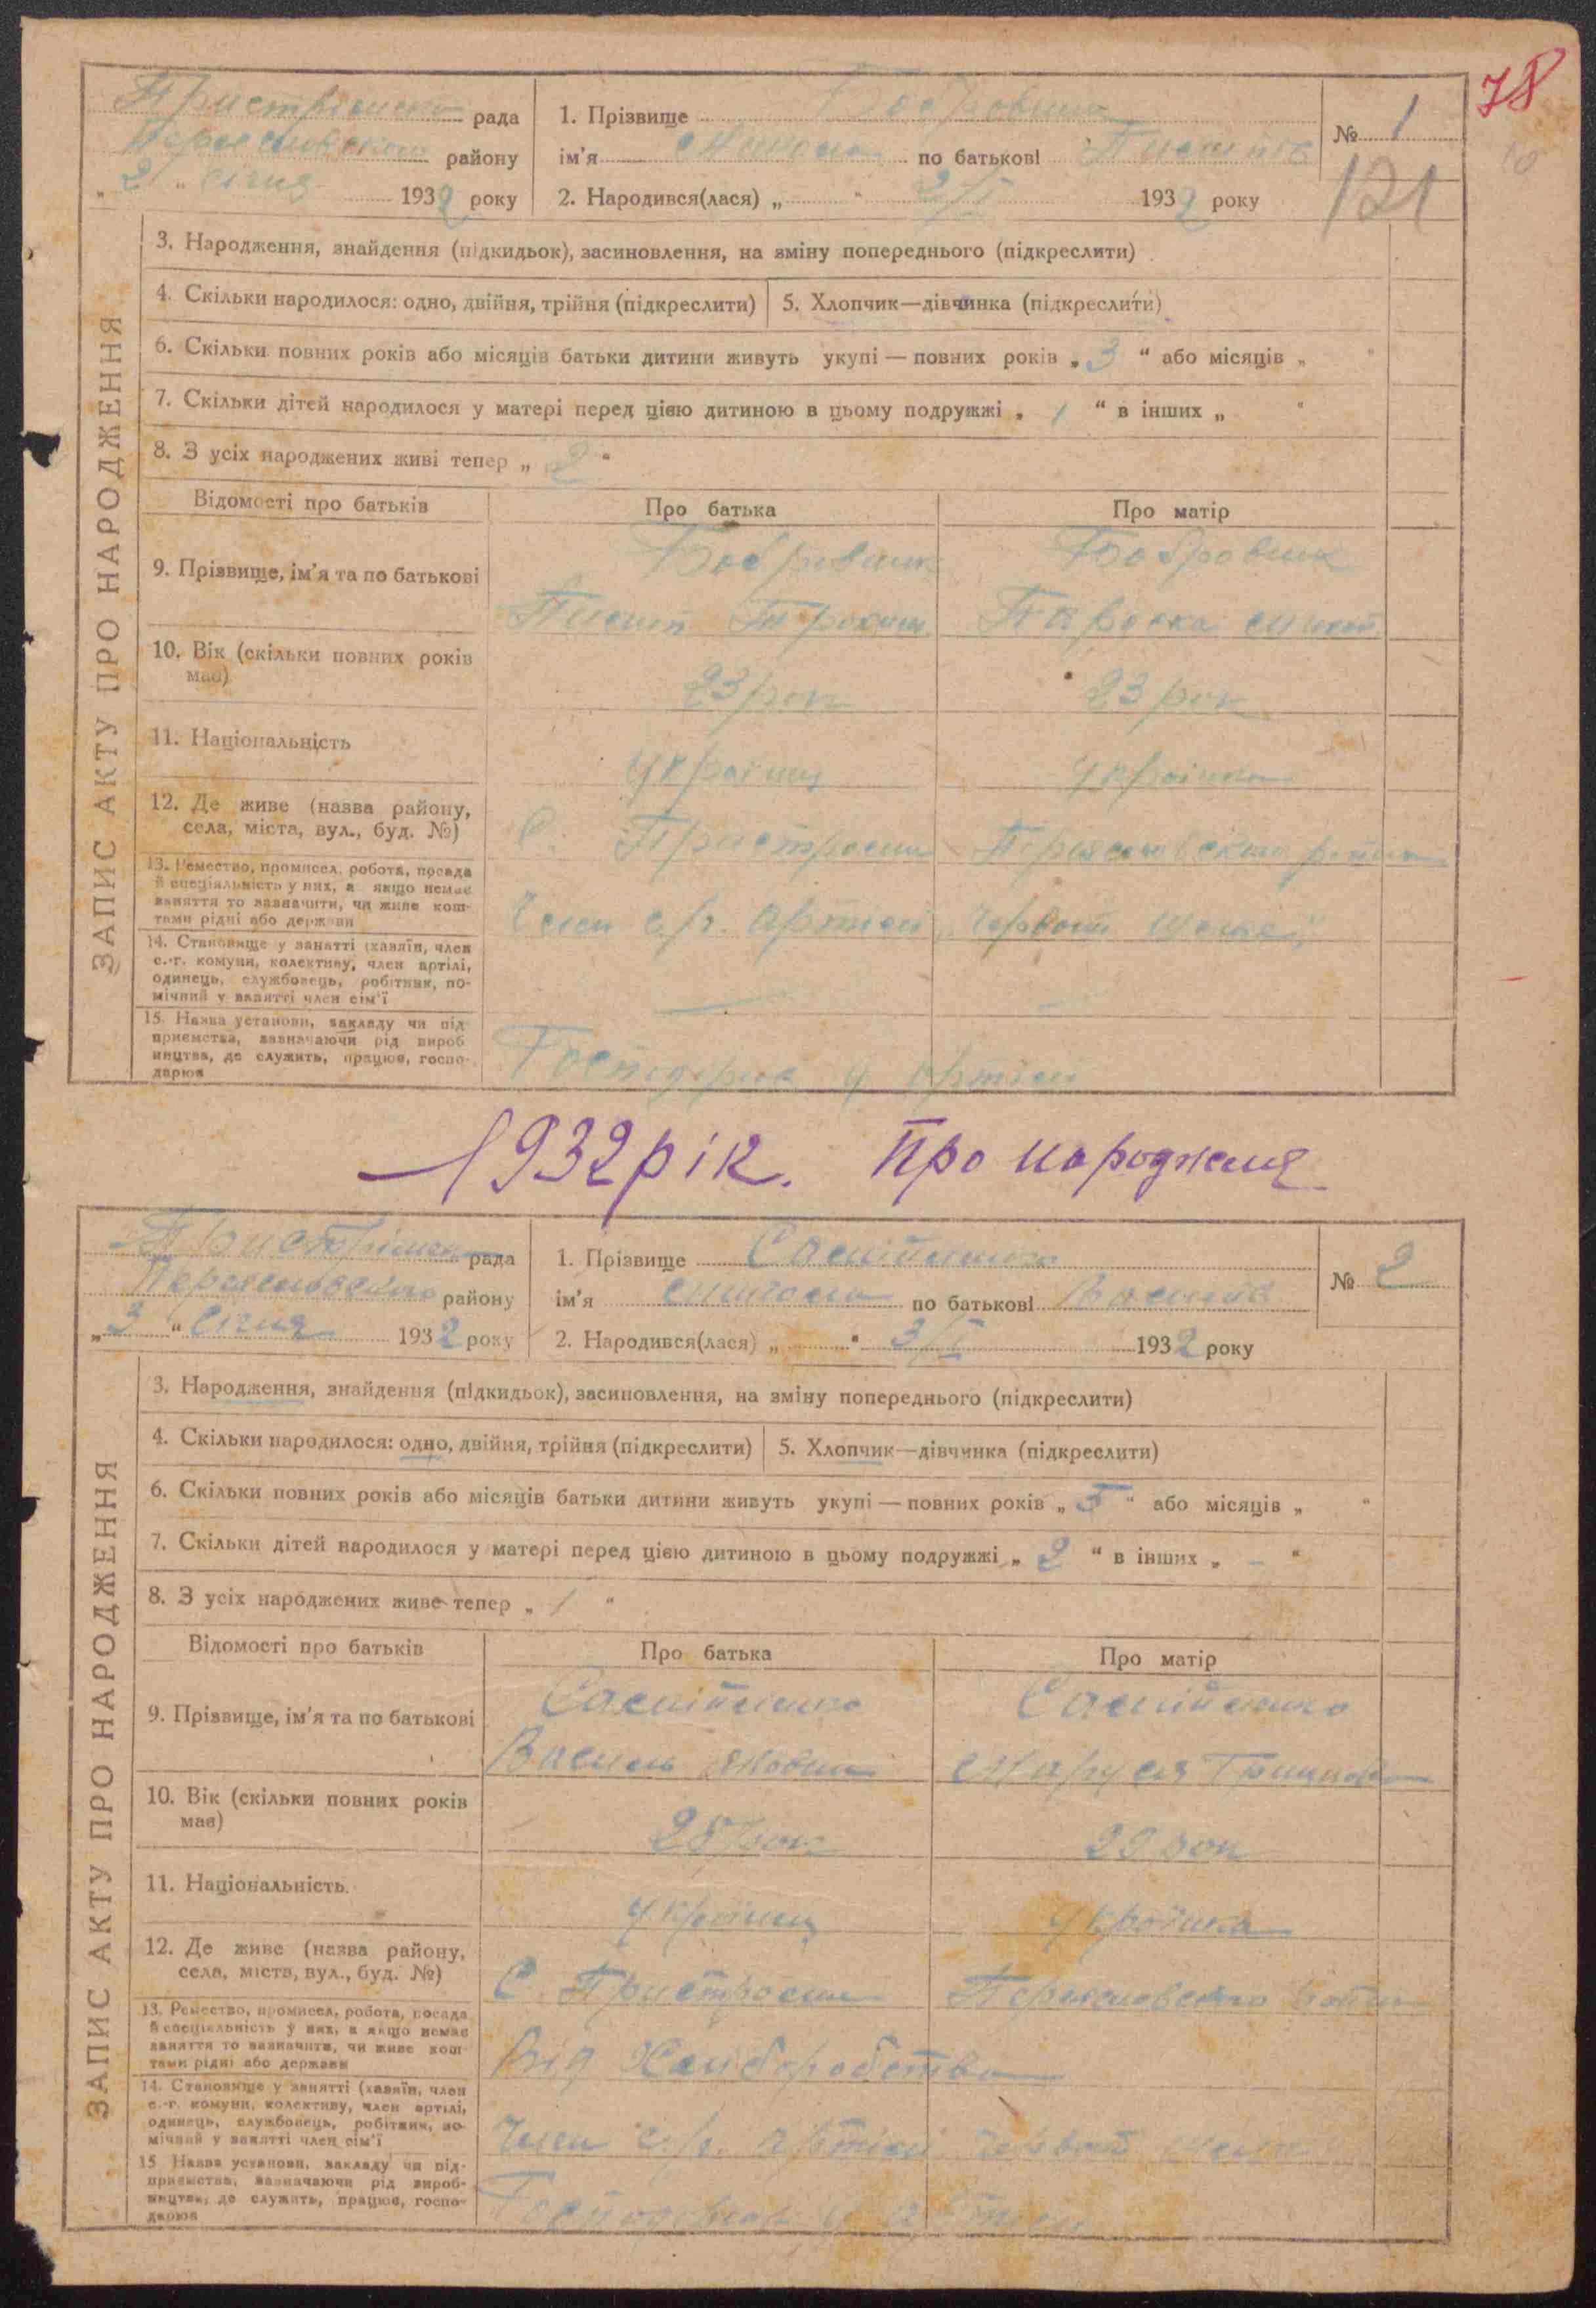 78
Пристрімська рада
Переяславського району
„ 2 “ січня 1932 року
1. Прізвище Бобровник
ім’я Микола по батькові
2. Народився(лася) „ “ 2/I 1932 року
№ 1
121
ЗАПИС АКТУ ПРО НАРОДЖЕННЯ
3. Народження, знайдення (підкидьок), засиновлення, на зміну попереднього (підкреслити)
4. Скільки народилося: одно, двійня, трійня (підкреслити)
5. Хлопчик—дівчинка (підкреслити)
6. Скільки повних років або місяців батьки дитини живуть укупі — повних років „ 3 “ або місяців „ “
7. Скільки дітей народилося у матері перед цією дитиною в цьому подружжі „ 1 “ в інших „ “
8. З усіх народжених живі тепер „ 2 “
Відомості про батьків
Про батька
Про матір
9. Прізвище, ім’я та по батькові
Бобровник
Бобровник
Параска
10. Вік (скільки повних років
має)
23 рок
23 рок
11. Національність
Українц
Українка
12. Де живе (назва району,
села, міста, вул., буд. №)
С. Пристроми Переяславського району
13. Ремество, промисел, робота, посада
й спеціяльність у них, а якщо немає
заняття то зазначити, чи живе кош-
тами рідні або держави
Член с/г. артілі „Червоний
14. Становище у занятті (хазяїн, член
с.-г. комуни, колективу, член артілі,
одинець, службовець, робітник, по-
мічний у занятті член сім’ї
—
15. Назва установи, закладу чи під-
приємства, зазначаючи рід вироб
ництва, де служить, працює, госпо-
дарює
Господарює у артілі
1932 рік. Про народженя
Пристрімська рада
Переяславського району
„ 3 “ січня 1932 року
1. Прізвище
ім’я Микола по батькові Василів
2. Народився(лася) „ “ 3/I 1932 року
№ 2
ЗАПИС АКТУ ПРО НАРОДЖЕННЯ
3. Народження, знайдення (підкидьок), засиновлення, на зміну попереднього (підкреслити)
4. Скільки народилося: одно, двійня, трійня (підкреслити)
5. Хлопчик—дівчинка (підкреслити)
6. Скільки повних років або місяців батьки дитини живуть укупі — повних років „ 5 “ або місяців „ “
7. Скільки дітей народилося у матері перед цією дитиною в цьому подружжі „ 2 “ в інших „ – “
8. З усіх народжених живе тепер „ 1 “
Відомості про батьків
Про батька
Про матір
9. Прізвище, ім’я та по батькові
Василь
Маруся
10. Вік (скільки повних років
має)
28 рок
29 рок
11. Національність
Українец
Українка
12. Де живе (назва району,
села, міста, вул., буд. №)
С. Пристроми Переяславського району
13. Ремество, промисел, робота, посада
й спеціяльність у них, а якщо немає
заняття то зазначити, чи живе кош-
тами рідні або держави
Від Хліборобства
14. Становище у занятті (хазяїн, член
с.-г. комуни, колективу, член артілі,
одинець, службовець, робітник, по-
мічний у занятті член сім’ї
Член с/г. артілі Червоний
15 Назва установи, закладу чи під-
приємства, зазначаючи рід вироб-
ництва, де служить, працює, госпо-
дарює
Господарює у артілі